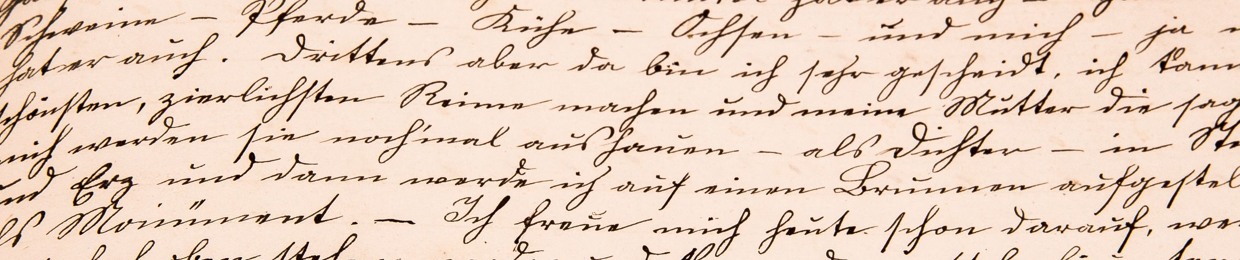 Schweine – Pferde – Kühe – Ochsen – und mich – ja
hat er auch. Drittens aber da bin ich sehr gescheidt, ich kann
schönsten, zierlichsten Reime machen und meine Mutter die sag
mich werden sie noch'mal aushauen – als Dichter – in
und Erz und dann werde ich auf einen Brunnen aufgestel
als Monüment. – Ich freue mich heute schon darauf, we